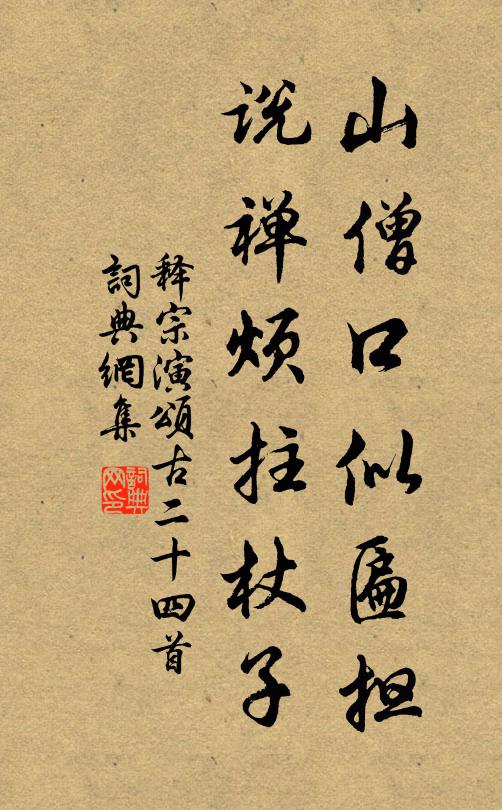 山僧口似匾担
説禅烦拄杖子
释宗演頌古二十四首
詞典網集
詞典網印